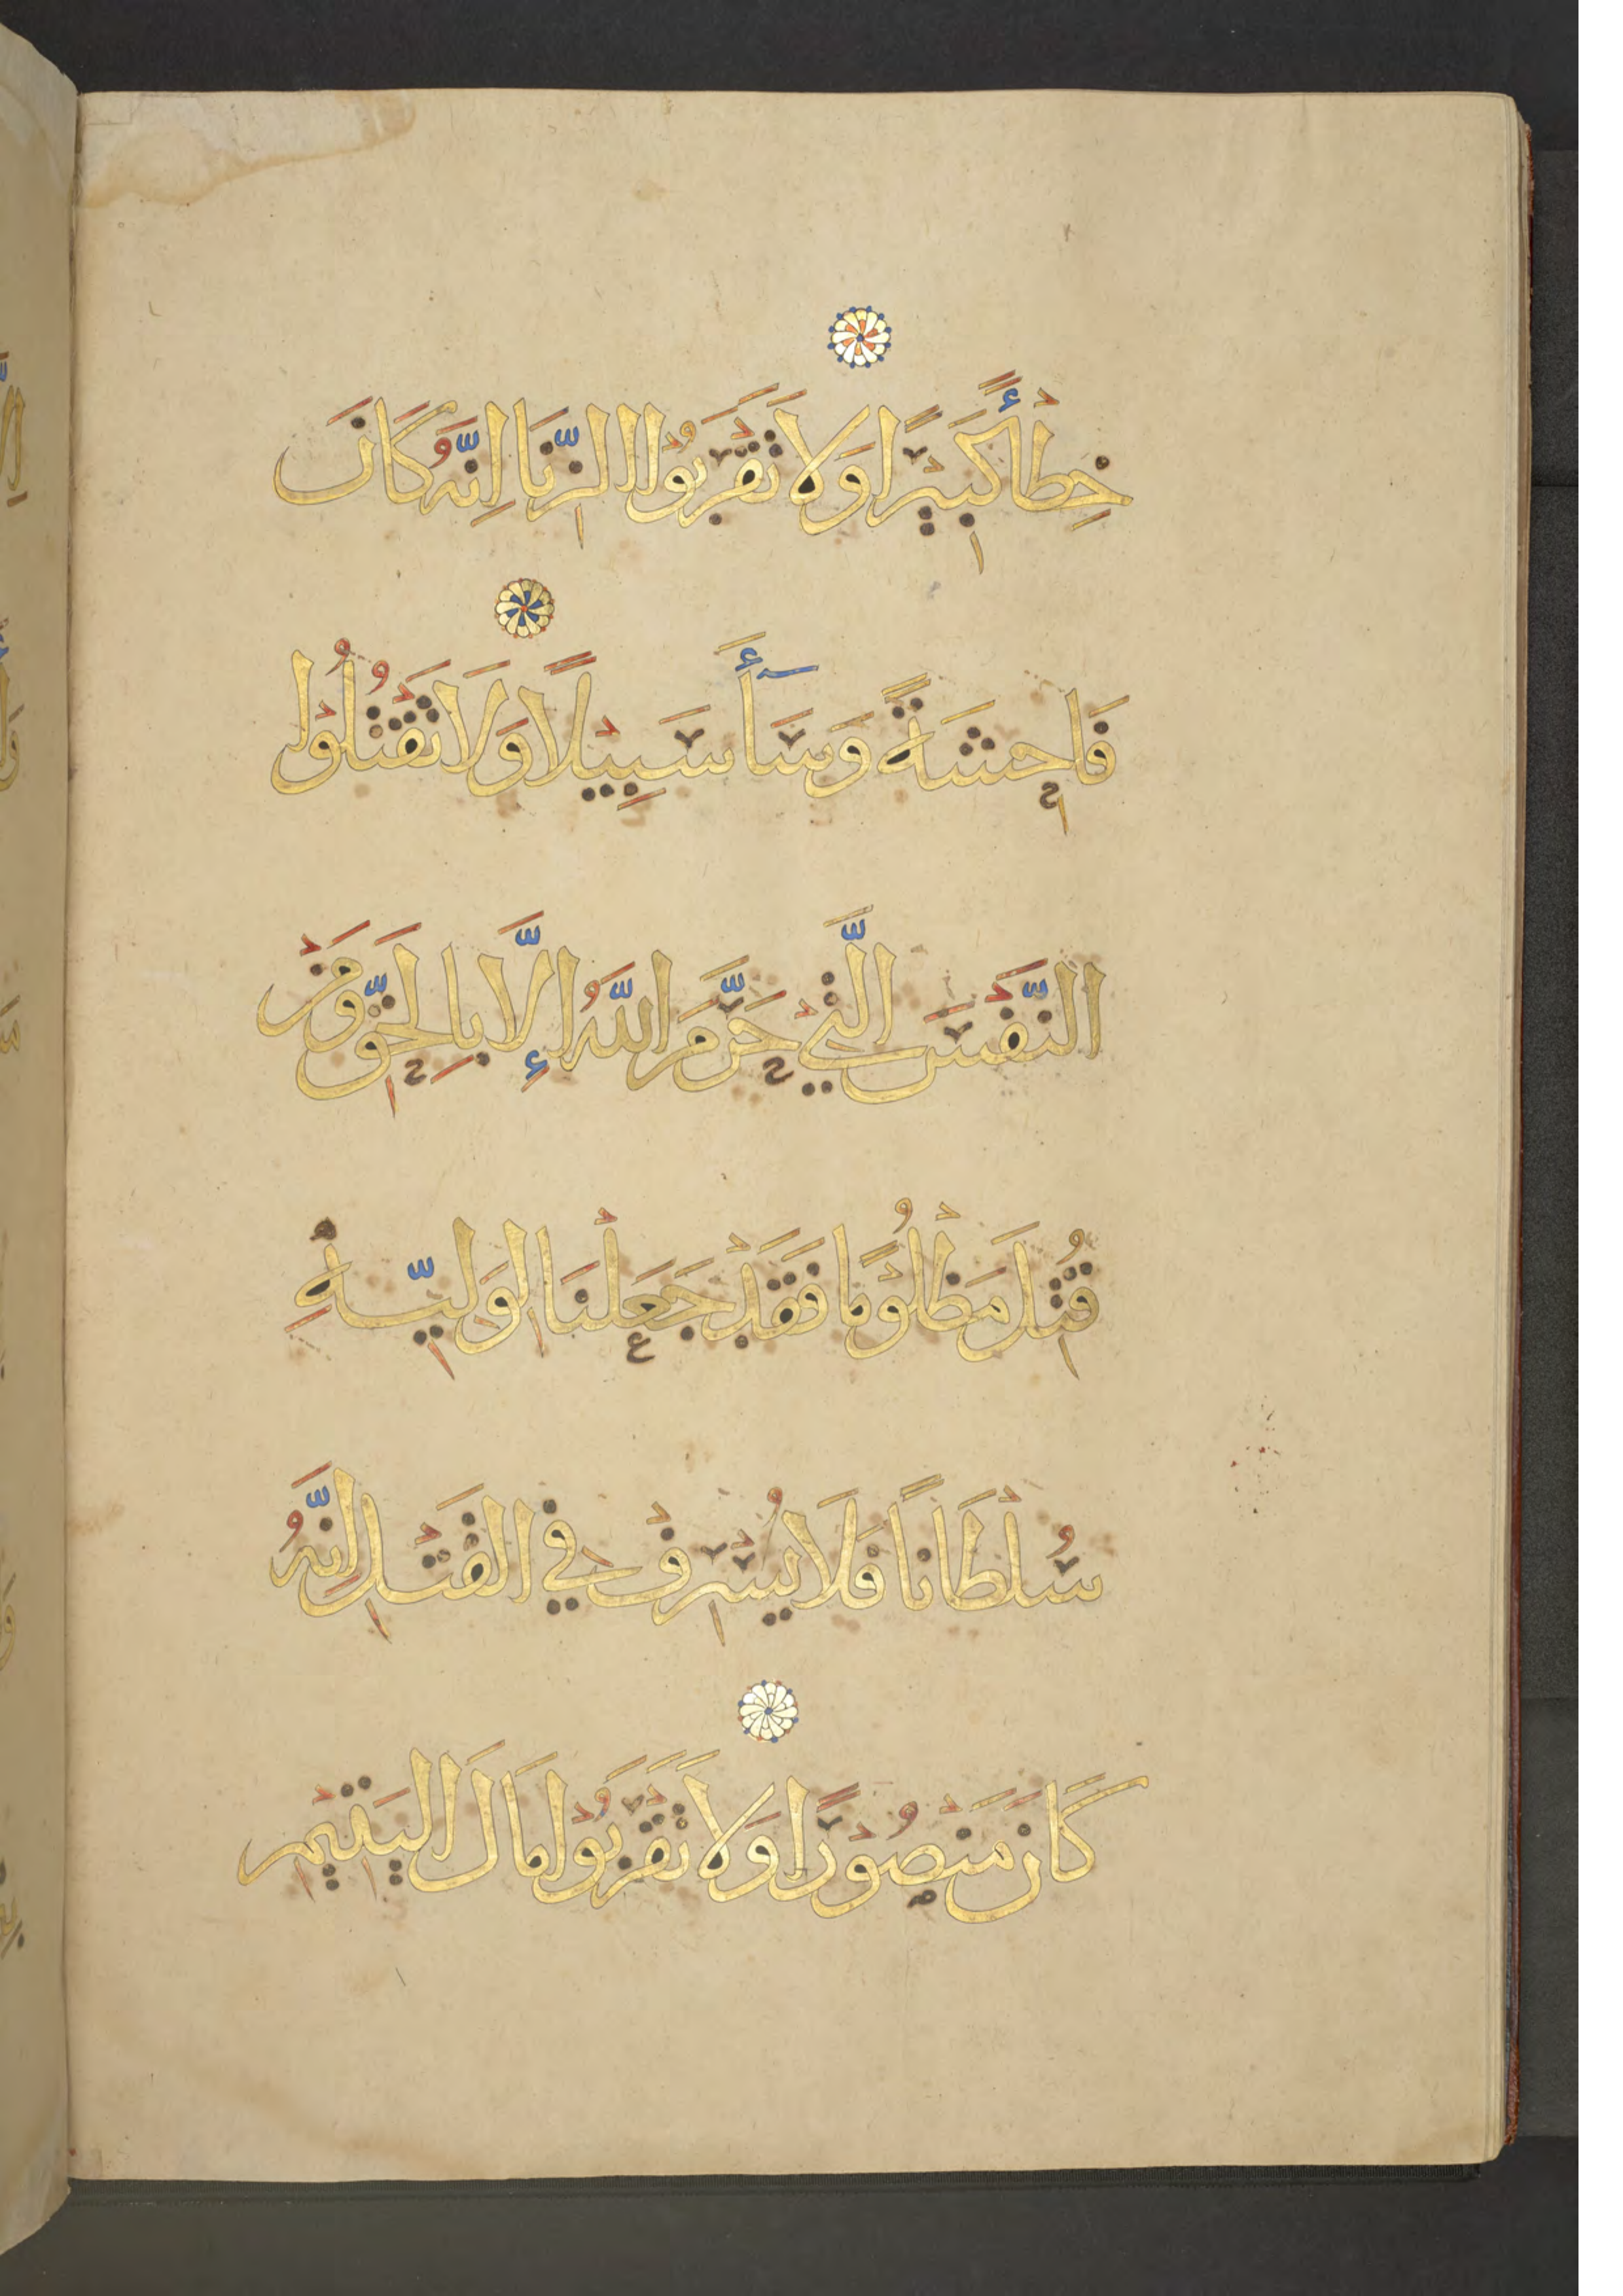 خِطْأً كَبِيْرًا وَلَا تَقْرَبُوْا الزِّنَا اِنَّهُ كَانَ
فَاحِشَةً وَسَاۤأَ سَبِيْلًا وَلَا تَقْتُلُوْا
النَّفْسَ الَّتِيْ حَرَّمَ اللّٰهُ إِلَّا بِالْحَقِّ وَمَنْ
قُتِلَ مَظْلُوْمًا فَقَدْ جَعَلْنَا لِوَلِيِّهِ
سُلْطَانًا فَلَا يُسْرِفْ فِي الْقَتْلِ اِنَّهُ
كَانَ مَنْصُوْرًا وَلَا تَقْرَبُوْا مَالَ الْيَتِيْمِ